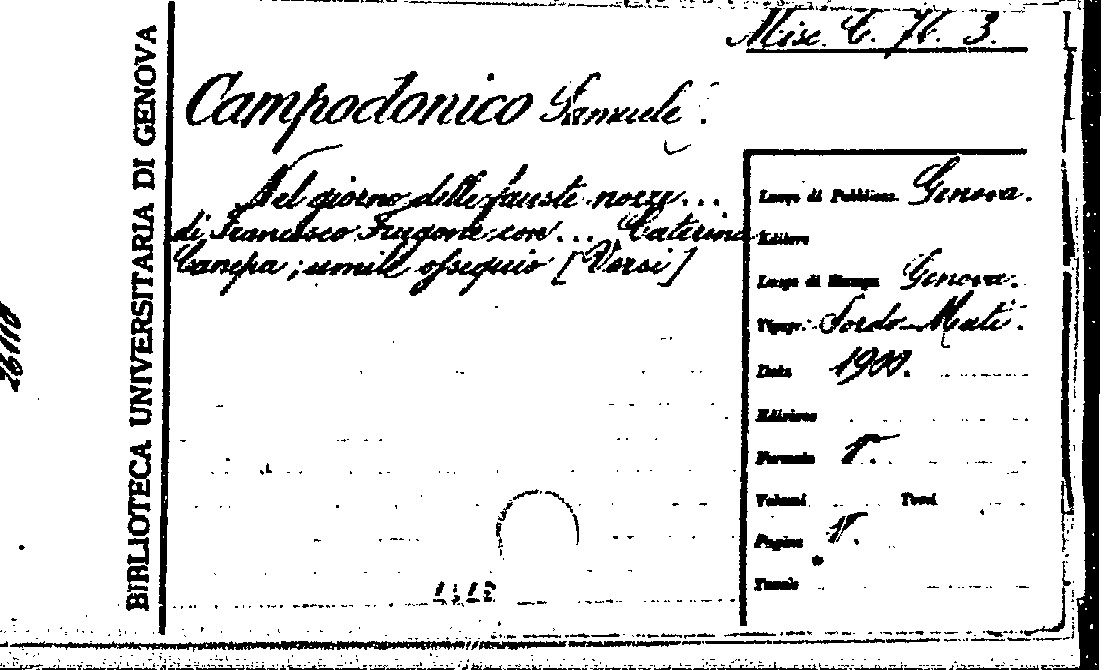 Misc. C. 76. 3.
Campodonico Samuele.
Nel giorno delle fauste nozze...
di Francesco Frugone con... Caterina
Canepa; umile ossequio [Versi]
Luogo di Pubblicaz. Genova.
Editore
Luogo di Stampa Genova.
Tipogr. Sordo-Muti.
Data 1900.
Edizione
Formato
Volumi Tomi
Pagine
Tavole
BIBLIOTECA UNIVERSITARIA DI GENOVA